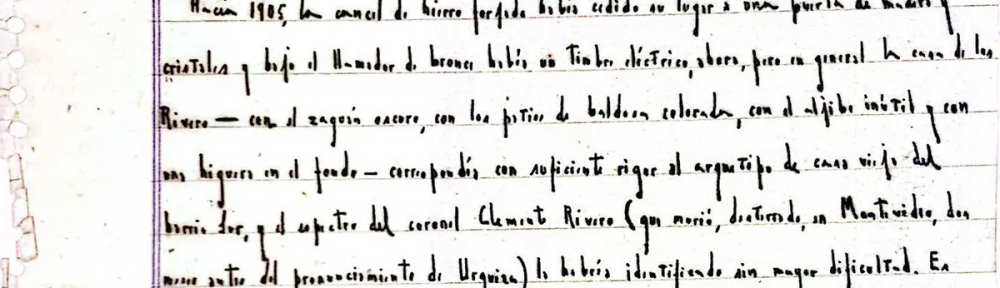 Hacia 1905, la cancel de hierro forjado había cedido su lugar a una puerta de madera y
cristales y bajo el llamador de bronce había un timbre eléctrico, ahora, pero en general la casa de los
Rivero — con el zaguán oscuro, con los patios de baldosa colorada, con el aljibe inútil y con
una higuera en el fondo — correspondía con suficiente rigor al arquetipo de casa vieja del
barrio Sur, y el espectro del coronel Clement Rivero (que murió, desterrado, en Montevideo, dos
meses antes del pronunciamiento de Urquiza) la habría identificado sin mayor dificultad. En